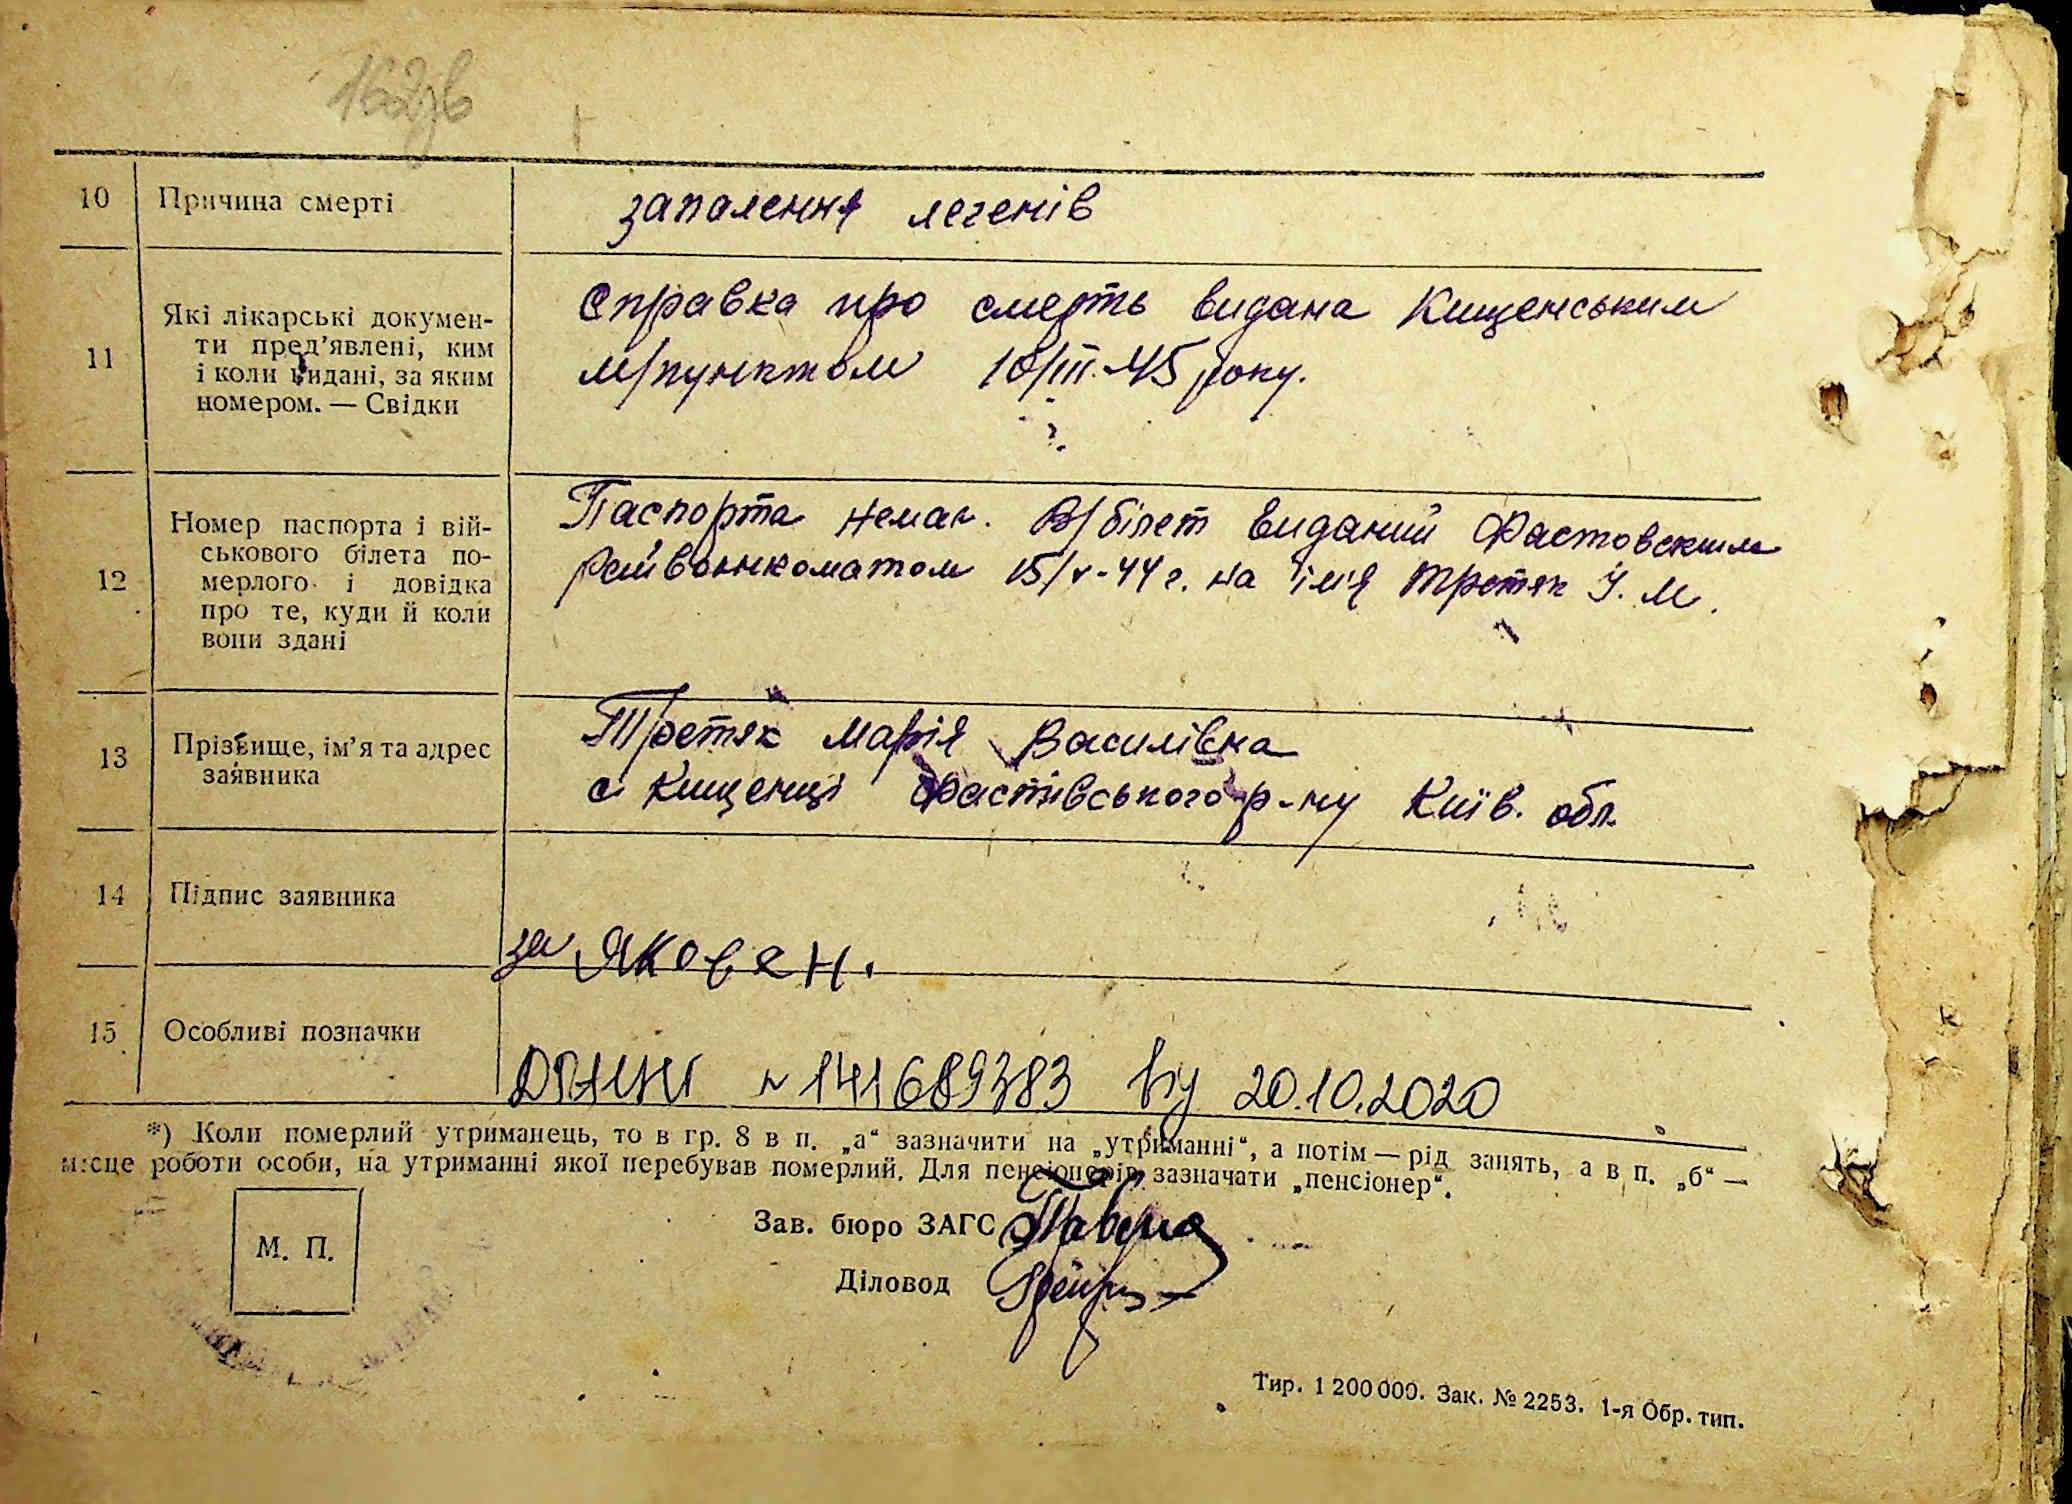 162зв
10 Причина смерті
запалення легенів
11 Які лікарські докумен-
ти пред'явлені, ким
і коли видані, за яким
номером. — Свідки
Справка про смерть видана Кищенським
м/пунктом 10/III-45 року.
12 Номер паспорта і вій-
ськового білета по-
мерлого і довідка
про те, куди й коли
вони здані
Паспорта немає. В/білет виданий Фастовским
Райвоенкоматом 15/V-44 г. на ім'я Третяк У. М.
13 Прізвище, ім'я та адрес
заявника
Третяк Марія Василівна
с Кищенці Фастівського р-ну Київ. обл.
14 Підпис заявника
за Яковен.
15 Особливі позначки
№ 141689383 від 20.10.2020
*) Коли померлий утриманець, то в гр. 8 в п. „а“ зазначити на „утриманні“, а потім — рід занять, а в п. „б“ —
місце роботи особи, на утриманні якої перебував померлий. Для пенсіонерів зазначати „пенсіонер“.
М. П.
Зав. бюро ЗАГС
Діловод
Тир. 1 200 000. Зак. № 2253. 1-я Обр. тип.